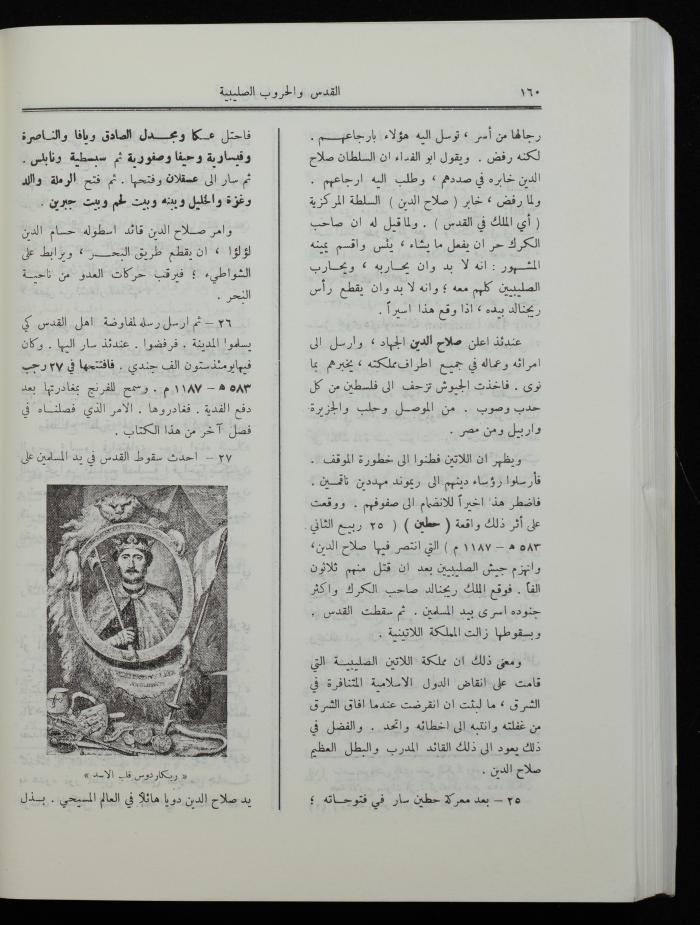 ١٦٠
القدس والحروب الصليبية
رجالها من أسر ، توسل اليه هؤلاء بارجاعهم .
لكنه رفض . ويقول ابو الفداء ان السلطان صلاح
الدين خابره في صددهم ، وطلب اليه ارجاعهم .
ولما رفض ، خابر ( صلاح الدين ) السلطة المركزية
( أي الملك في القدس ) . ولما قيل له ان صاحب
الكرك حر ان يفعل ما يشاء ، يئس واقسم يمينه
المشهور : انه لا بد وان يحاربه ، ويحارب
الصليبيين كلهم معه ؛ وانه لا بد وان يقطع رأس
ريجنالد بيده ، اذا وقع هذا اسيراً .
عندئذ اعلن صلاح الدين الجهاد ، وارسل الى
امرائه وعماله في جميع اطراف مملكته ، يخبرهم بما
نوى . فاخذت الجيوش تزحف الى فلسطين من كل
حدب وصوب . من الموصل وحلب والجزيرة
واربيل ومن مصر .
ويظهر ان اللاتين فطنوا الى خطورة الموقف .
فأرسلوا رؤساء دينهم الى ريموند مهددين ناقمين .
فاضطر هذ اخيراً للانضمام الى صفوفهم . ووقعت
على أثر ذلك واقعة ( حطين ) ( ٢٥ ربيع الثاني
٥٨٣ ه – ١١٨٧ م ) التي انتصر فيها صلاح الدين ،
وانهزم جيش الصليبيين بعد ان قتل منهم ثلاثون
الفاً . فوقع الملك ريجنالد صاحب الكرك واكثر
جنوده اسرى بيد المسلمين . ثم سقطت القدس .
وبسقوطها زالت المملكة اللاتينية .
ومعنى ذلك ان مملكة اللاتين الصليبية التي
قامت على انقاض الدول الاسلامية المتنافرة في
الشرق ، ما لبثت ان انقرضت عندما افاق الشرق
من غفلته وانتبه الى اخطائه واتحد . والفضل في
ذلك يعود الى ذلك القائد المدرب والبطل العظيم
صلاح الدين .
٢٥ – بعد معركة حطين سار في فتوحاته ؛
فاحتل عكا ومجدل الصادق ويافا والناصرة
وقيسارية وحيفا وصفورية ثم سبسطية ونابلس .
ثم سار الى عسقلان وفتحها . ثم فتح الرملة والد
وغزة والخليل ويبنه وبيت لحم وبيت جبرين .
وامر صلاح الدين قائد اسطوله حسام الدين
لؤلؤا ، ان يقطع طريق البحر ، ويرابط على
الشواطيء ؛ فيرقب حركات العدو من ناحية
البحر .
٢٦ – ثم ارسل رسله لمفاوضة اهل القدس كي
يسلموا المدينة . فرفضوا . عندئذ سار اليها . وكان
فيهايومئذستون الف جندي . فافتتحها في ٢٧ رجب
٥٨٣ ه – ١١٨٧ م . وسمح للفرنج بمغادرتها بعد
دفع الفدية . فغادروها . الامر الذي فصلناه في
فصل آخر من هذا الكتاب .
٢٧ – احدث سقوط القدس في يد المسلمين على
« ريكاردوس قلب الاسد »
يد صلاح الدين دويا هائلاً في العالم المسيحي . بذل